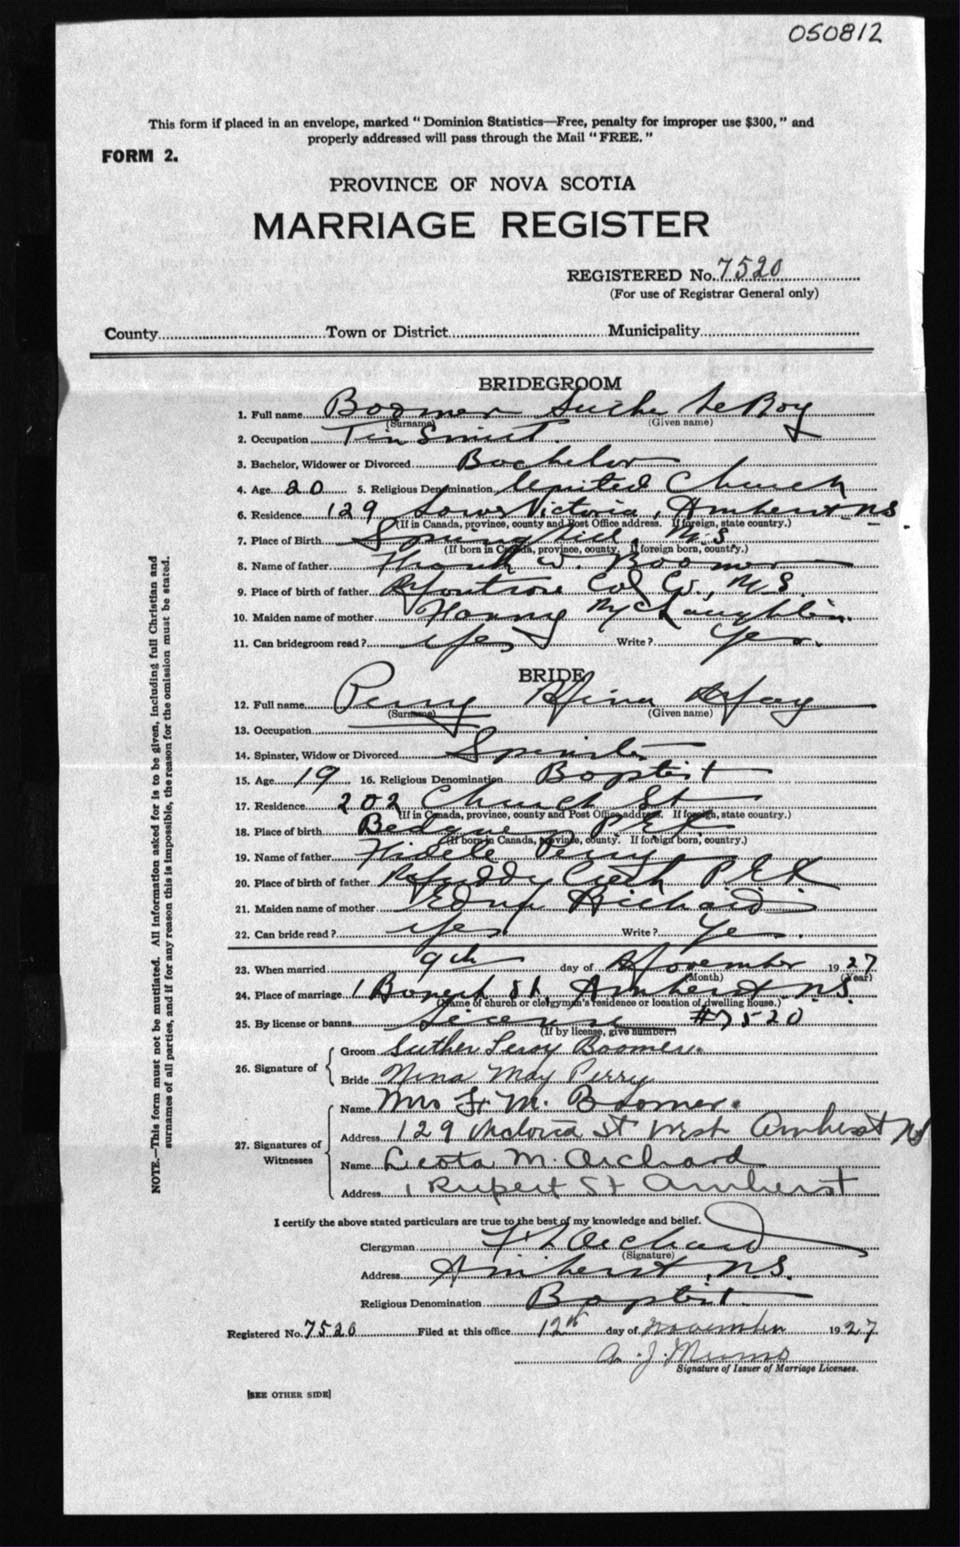 050812
This form if placed in an envelope, marked "Dominion Statistics—Free, penalty for improper use $300," and
properly addressed will pass through the Mail "FREE."
FORM 2.
PROVINCE OF NOVA SCOTIA
MARRIAGE REGISTER
REGISTERED No. 7520
(For use of Registrar General only)
County Town or District Municipality
BRIDEGROOM
1. Full name Boomer Luther LeRoy
(Surname) (Given name)
2. Occupation Tin Smith
3. Bachelor, Widower or Divorced Bachelor
4. Age 20 5. Religious Denomination United Church
6. Residence 129 Lower Victoria, Amherst N.S.
(If in Canada, province, county and Post Office address. If foreign, state country.)
7. Place of Birth Springhill, N.S.
(If born in Canada, province, county. If foreign born, country.)
8. Name of father Frank W. Boomer
9. Place of birth of father Col Co., N.S.
10. Maiden name of mother McLaughlin
11. Can bridegroom read? Yes Write? Yes.
BRIDE
12. Full name Perry Nina May
(Surname) (Given name)
13. Occupation
14. Spinster, Widow or Divorced Spinster
15. Age 19 16. Religious Denomination Baptist
17. Residence 202 Church St
(If in Canada, province, county and Post Office address. If foreign, state country.)
18. Place of birth Bedeque P.E.I.
(If born in Canada, province, county. If foreign born, country.)
19. Name of father Perry
20. Place of birth of father P.E.I.
21. Maiden name of mother Richard
22. Can bride read? Yes Write? Yes.
23. When married 9th day of November 1927
(Month) (Year)
24. Place of marriage 1 St, Amherst N.S.
(Name of church or clergyman's residence or location of dwelling house.)
25. By license or banns License #7520
(If by license, give number.)
26. Signature of
Groom Luther Leroy Boomer.
Bride Nina May Perry
27. Signatures of Witnesses
Name Mrs F. M. Boomer.
Address 129 Victoria St West Amherst NS
Name Leota M. Orchard
Address 1 Rupert St Amherst
I certify the above stated particulars are true to the best of my knowledge and belief.
Clergyman Orchard
(Signature)
Address Amherst, N.S.
Religious Denomination Baptist
Registered No. 7520 Filed at this office 12th day of November 1927
A. J. Munro
Signature of Issuer of Marriage Licenses.
[SEE OTHER SIDE]
NOTE.—This form must not be mutilated. All information asked for is to be given, including full Christian and
surnames of all parties, and if for any reason this is impossible, the reason for the omission must be stated.